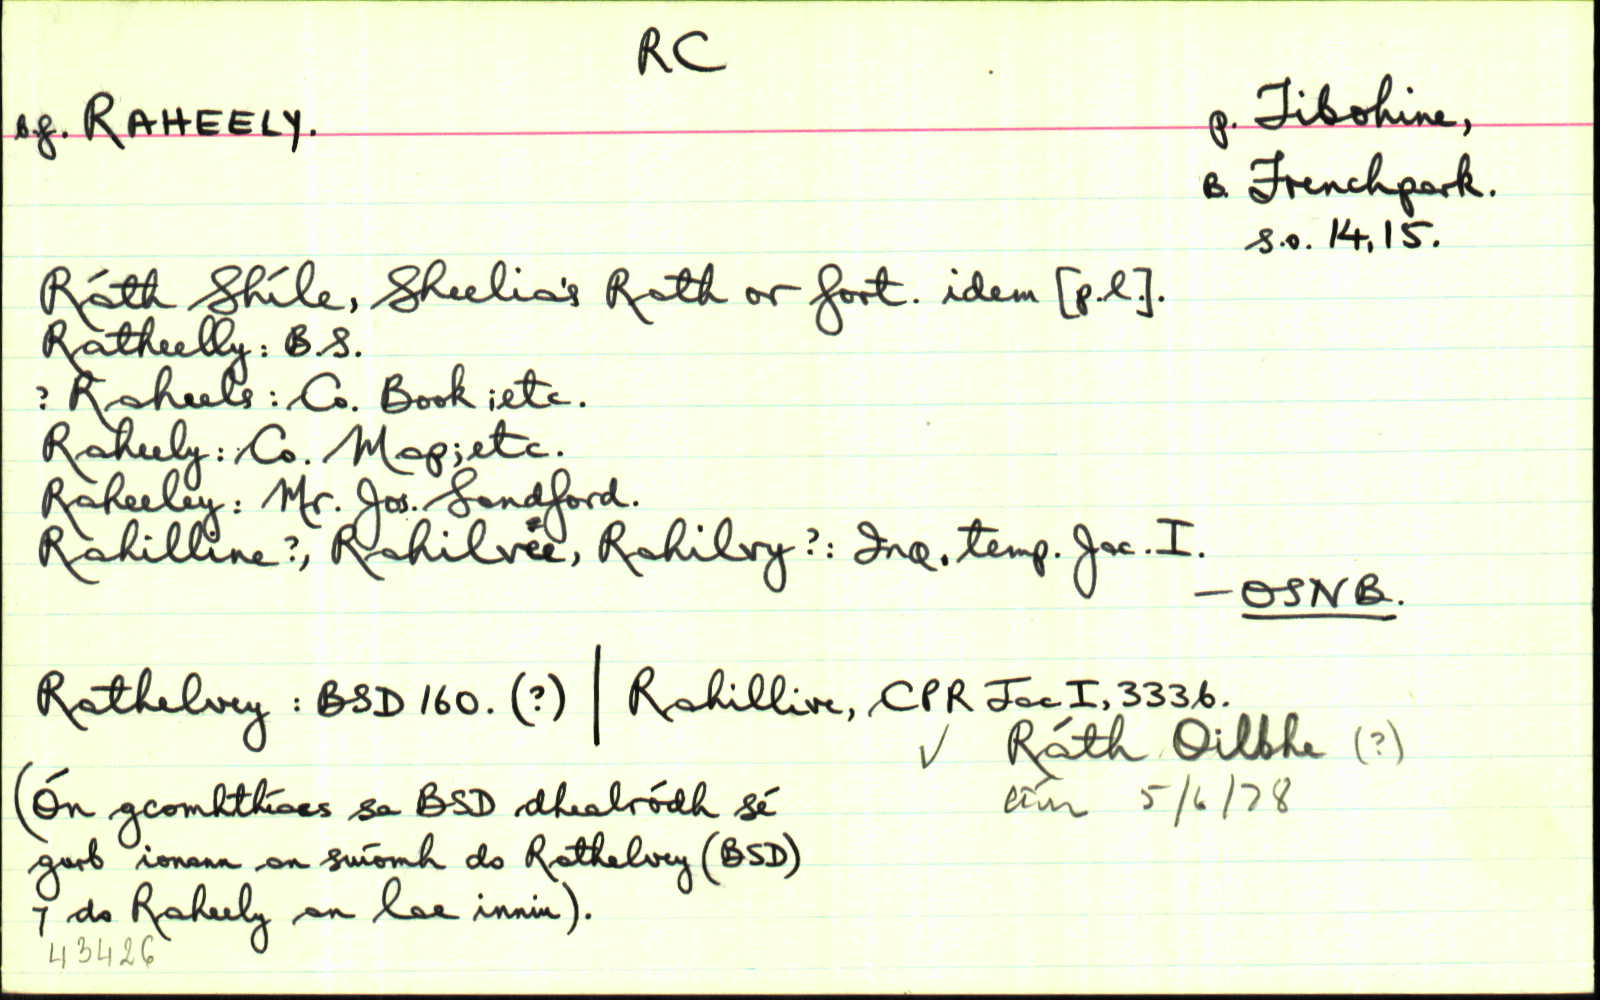 RC
b.f. RAHEELY.
p. Tibohine,
B. Frenchpark.
s.o. 14,15.
Ráth Shíle, Sheelia's Rath or fort. idem [p.l.].
Ratheelly: B.S.
? Raheels: Co. Book; etc.
Raheely: Co. Map; etc.
Raheeley: Mr. Jos. Sandford.
Rahilline?, Rahilvee, Rahilvy?: Inq. temp. Jac. I.
— OSNB.
Rathelvey: BSD 160. (?) | Rahillive, CPR Jac I, 333b.
✓ Ráth Oilbhe (?)
5/6/78
(Ón gcomhthíacs sa BSD dhealródh sé
gurb ionann an suíomh do Rathelvey (BSD)
⁊ do Raheely an lae inniu).
43426